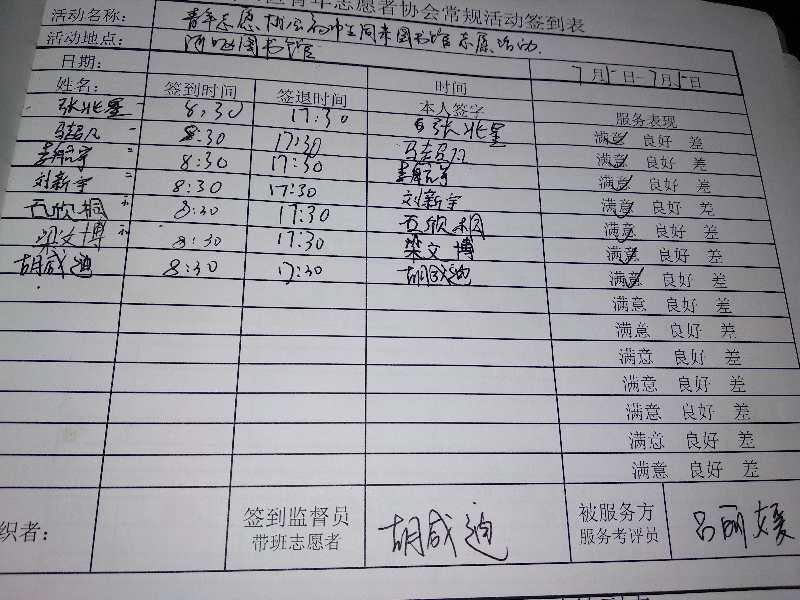 青年志愿者协会常规活动签到表
活动名称:
活动地点: 图书馆
日期: 7月 日-7月 日
姓名: 签到时间 签退时间 时间 本人签字 服务表现
张兆星 8:30 17:30 张兆星 满意 良好 差
马超凡 8:30 17:30 马超凡 满意 良好 差
8:30 17:30 满意 良好 差
刘新宇 8:30 17:30 刘新宇 满意 良好 差
石欣桐 8:30 17:30 石欣桐 满意 良好 差
梁文博 8:30 17:30 梁文博 满意 良好 差
胡咸迪 8:30 17:30 胡咸迪 满意 良好 差
满意 良好 差
满意 良好 差
满意 良好 差
满意 良好 差
满意 良好 差
满意 良好 差
满意 良好 差
织者: 签到监督员 胡咸迪 被服务方 吕丽媛
带班志愿者 服务考评员